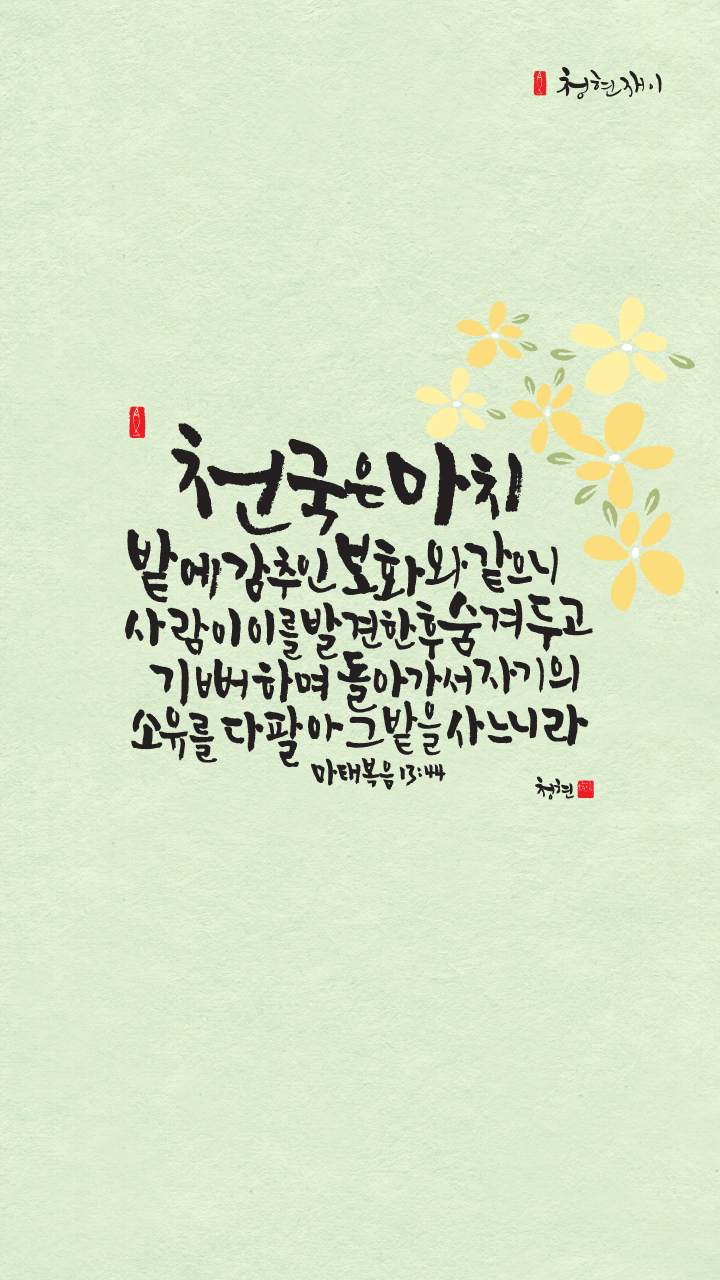 청현재이
천국은 마치
밭에 감추인 보화와 같으니
사람이 이를 발견한 후 숨겨 두고
기뻐하며 돌아가서 자기의
소유를 다 팔아 그 밭을 사느니라
마태복음 13:44
청현